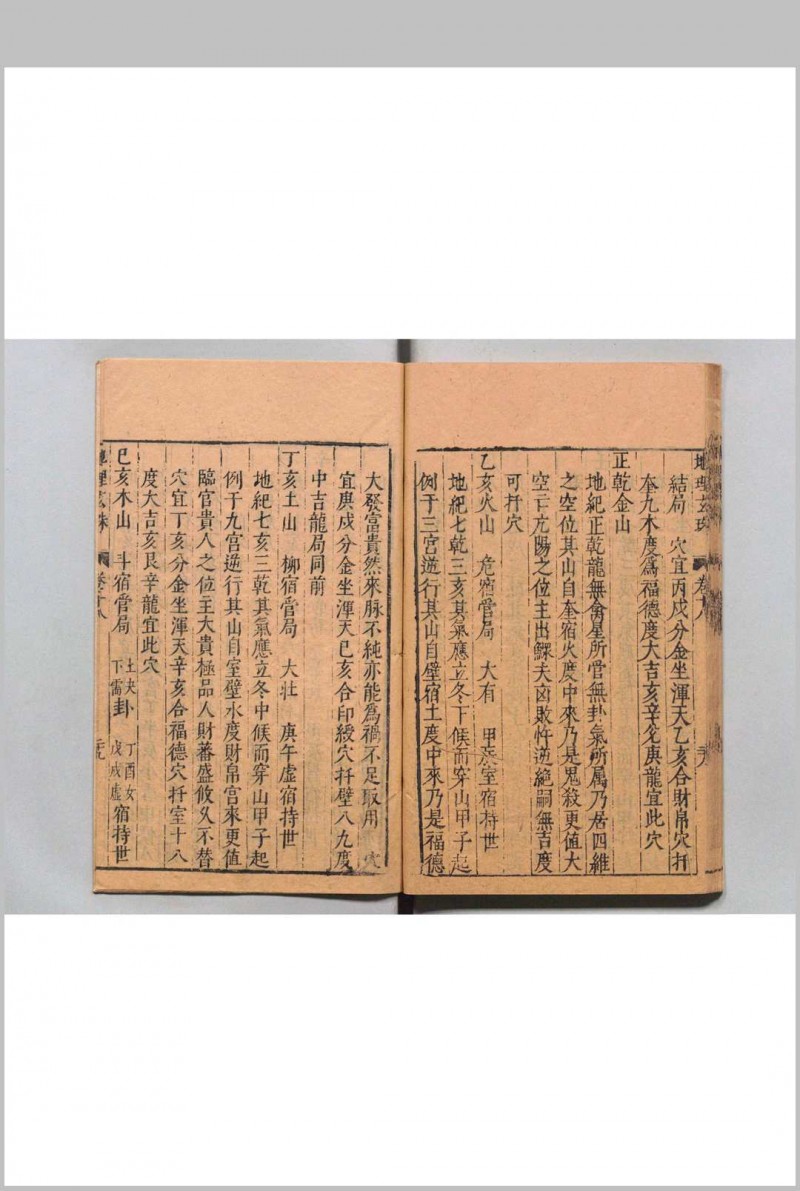 地理玄珠 卷十八
結局 穴宜丙戌分金坐渾天乙亥合財帛穴扦
奎九木度為福德度大吉亥辛兌庚龍宜此穴
正乾金山
地紀正乾龍無禽星所管無卦氣所屬乃居四維
之空位其山自奎宿火度中來乃是鬼殺更值大
空亡亢陽之位主出鰥夫凶敗忤逆絕嗣無吉度
可扦穴
乙亥火山 危宿管局 大有 甲辰室宿持世
地紀七乾三亥其氣應立冬下候而穿山甲子起
例于三宮遊行其山自壁宿土度中來乃是福德
大發富貴然來脉不純亦能為禍不足取用 穴
宜庚戌分金坐渾天巳亥合印綬穴扦壁八九度
中吉龍局同前
丁亥土山 柳宿管局 大壯 庚午虛宿持世
地紀七亥三乾其氣應立冬中候而穿山甲子起
例于九宮遊行其山自室壁水度財帛宮來更值
臨官貴人之位主大貴極品人財蕃盛攸久不替
穴宜丁亥分金坐渾天辛亥合福德穴扦室十八
度大吉亥艮辛龍宜此穴
巳亥木山 斗宿管局 上夬下需卦 丁酉女戊戌虛宿持世
地理玄珠 卷十八